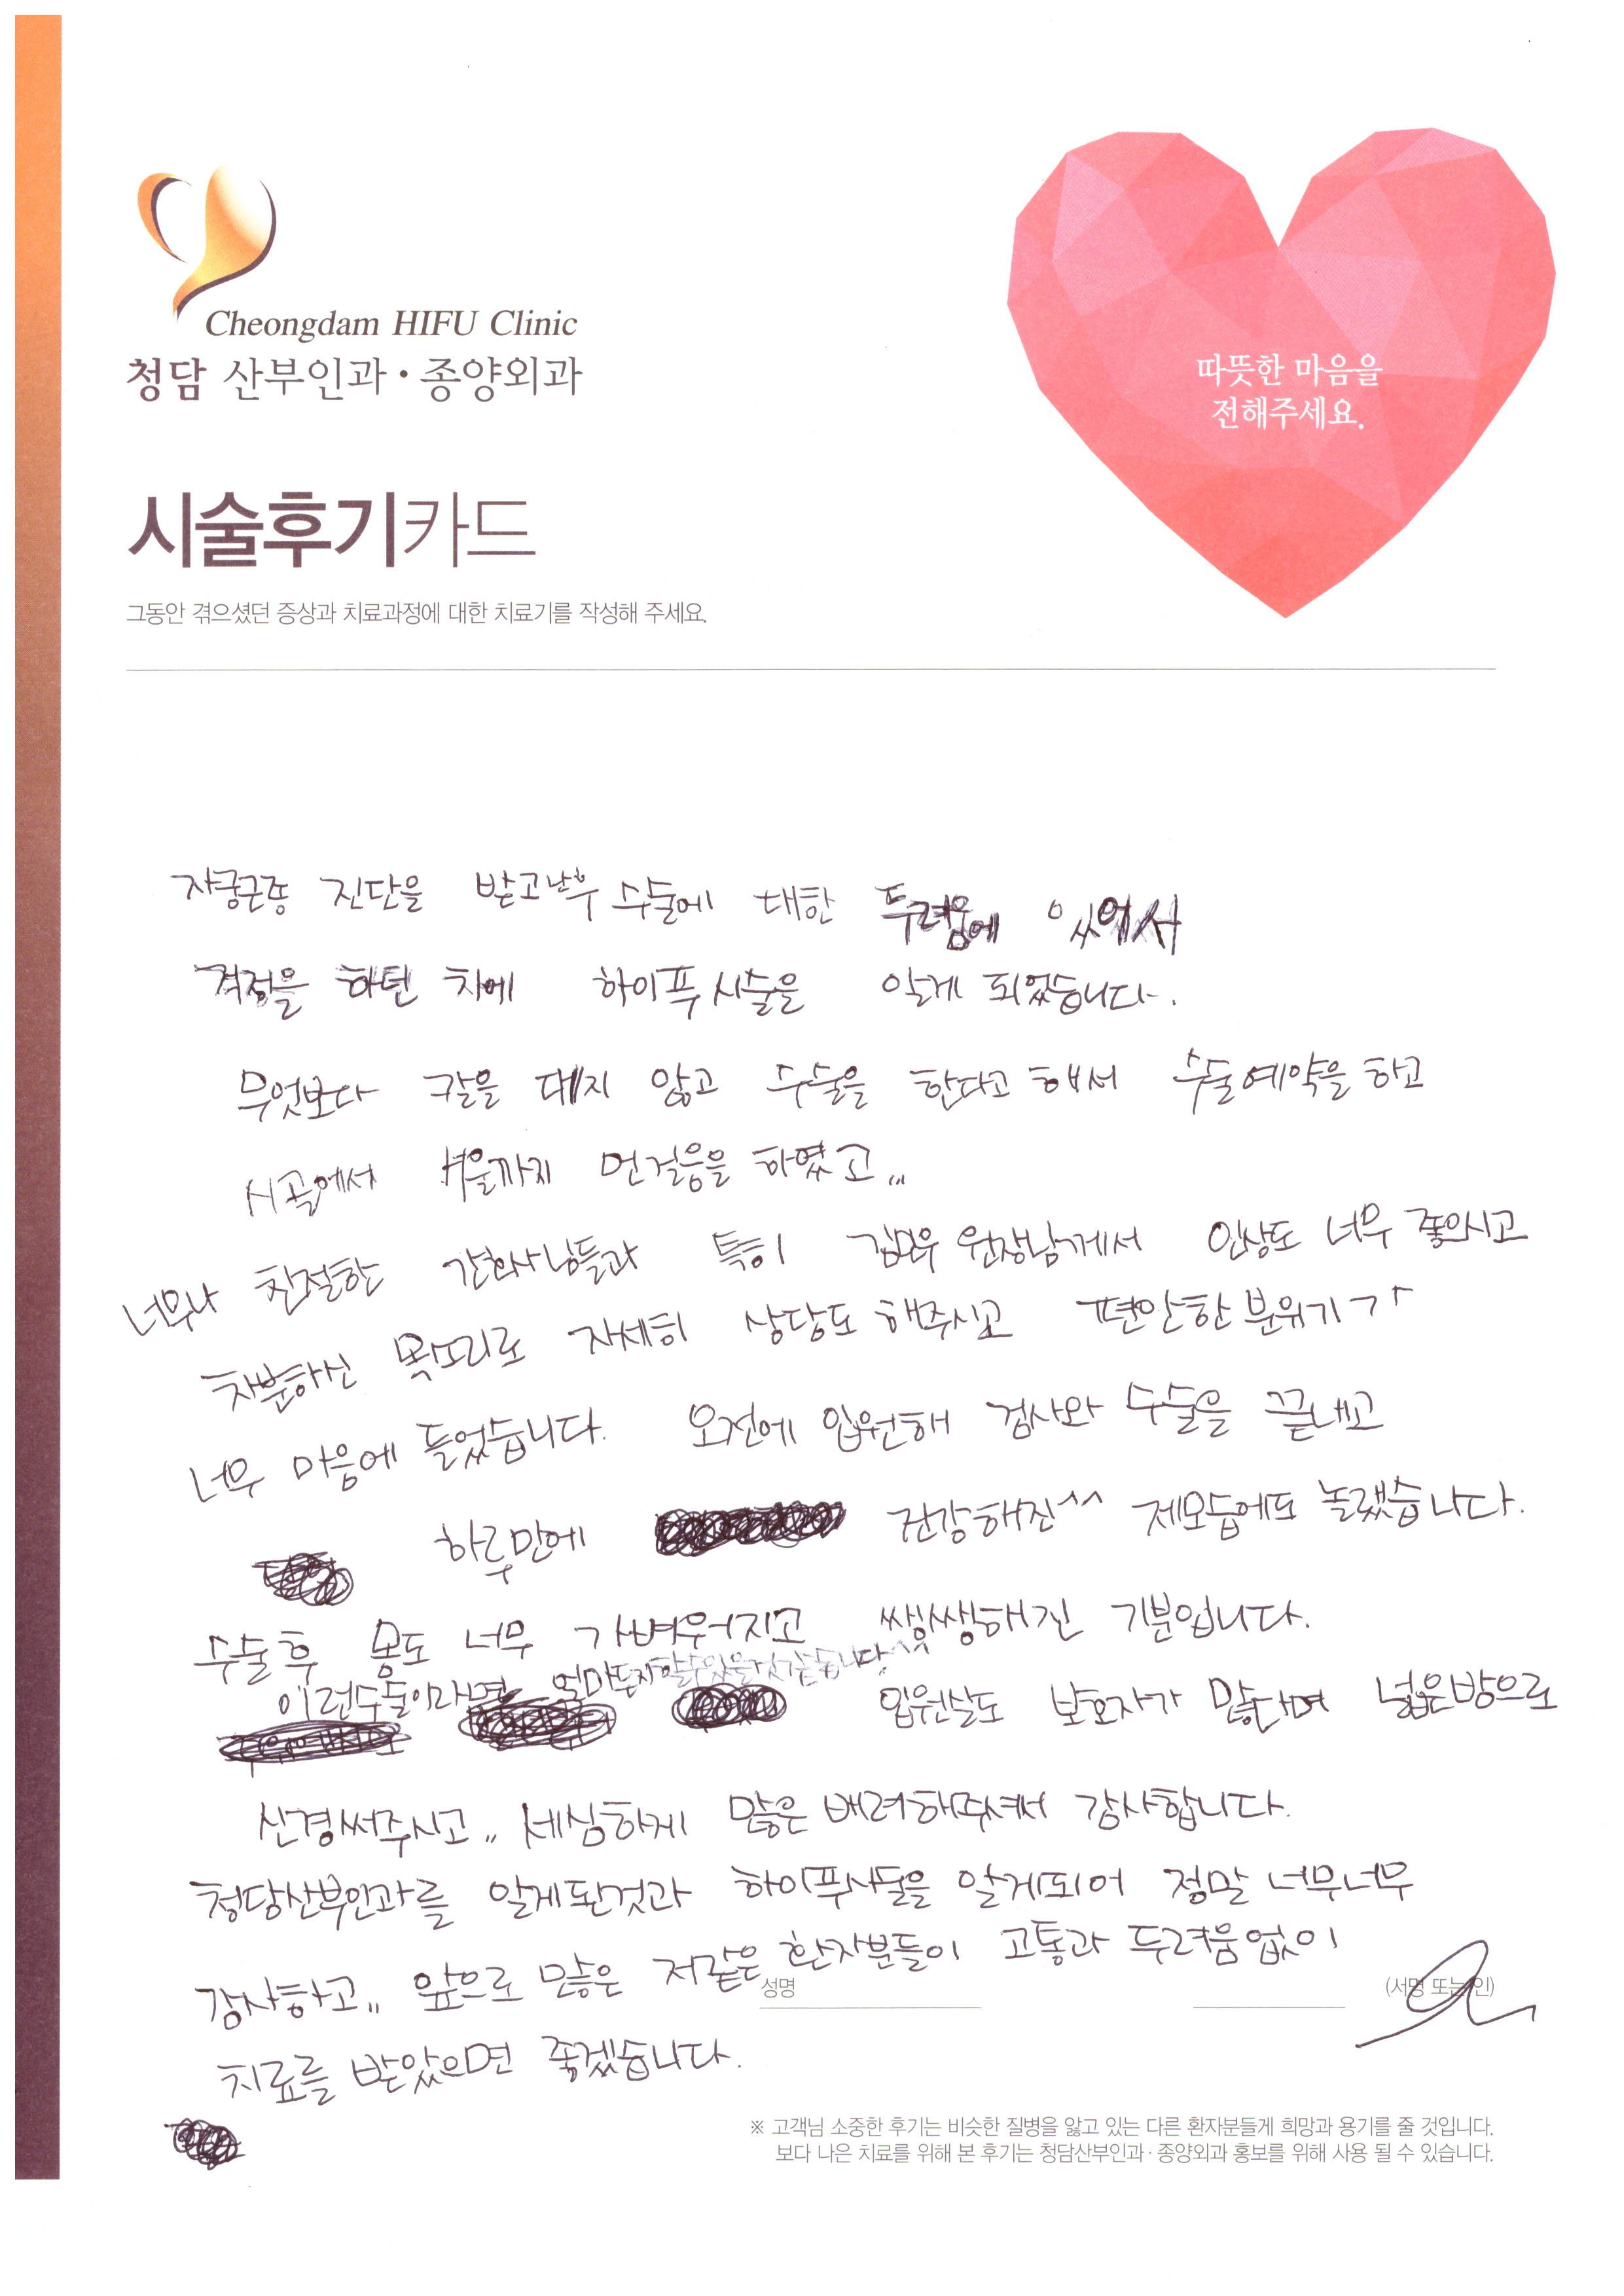 Cheongdam HIFU Clinic
청담 산부인과·종양외과
따뜻한 마음을
전해주세요.
시술후기카드
그동안 겪으셨던 증상과 치료과정에 대한 치료기를 작성해 주세요.
자궁근종 진단을 받고난후 수술에 대한 두려움에 있어서
걱정을 하던 차에 하이푸시술을 알게 되었습니다.
무엇보다 칼을 대지 않고 수술을 한다고 해서 수술예약을 하고
시골에서 서울까지 먼걸음을 하였고,,,
너무나 친절한 간호사님들과 특히 원장님께서 인상도 너무 좋으시고
차분하신 목소리로 자세히 상담도 해주시고 편안한 분위기가
너무 마음에 들었습니다. 오전에 입원해 검사와 수술을 끝내고
하루만에 건강해진^^ 제모습에도 놀랬습니다.
수술후 몸도 너무 가벼워지고 쌩쌩해진 기분입니다.
이런수술이라면 얼마든지할수있을것같습니다^^
입원실도 보호자가 많다며 넓은방으로
신경써주시고,, 세심하게 많은 배려해주셔서 감사합니다.
청담산부인과를 알게된것과 하이푸시술을 알게되어 정말 너무너무
감사하고,, 앞으로 많은 저같은 환자분들이 고통과 두려움없이
성명 (서명 또는 인)
치료를 받았으면 좋겠습니다.
※ 고객님 소중한 후기는 비슷한 질병을 앓고 있는 다른 환자분들게 희망과 용기를 줄 것입니다.
보다 나은 치료를 위해 본 후기는 청담산부인과·종양외과 홍보를 위해 사용 될 수 있습니다.